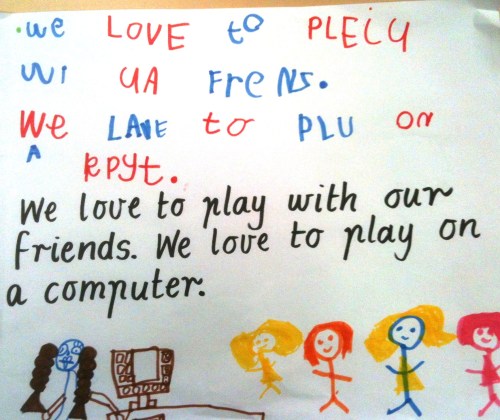 we LOVE to PLEiY
Wi UA FreNS.
We LAVE to PLU ON
A KPYt.
We love to play with our
friends. We love to play on
a computer.